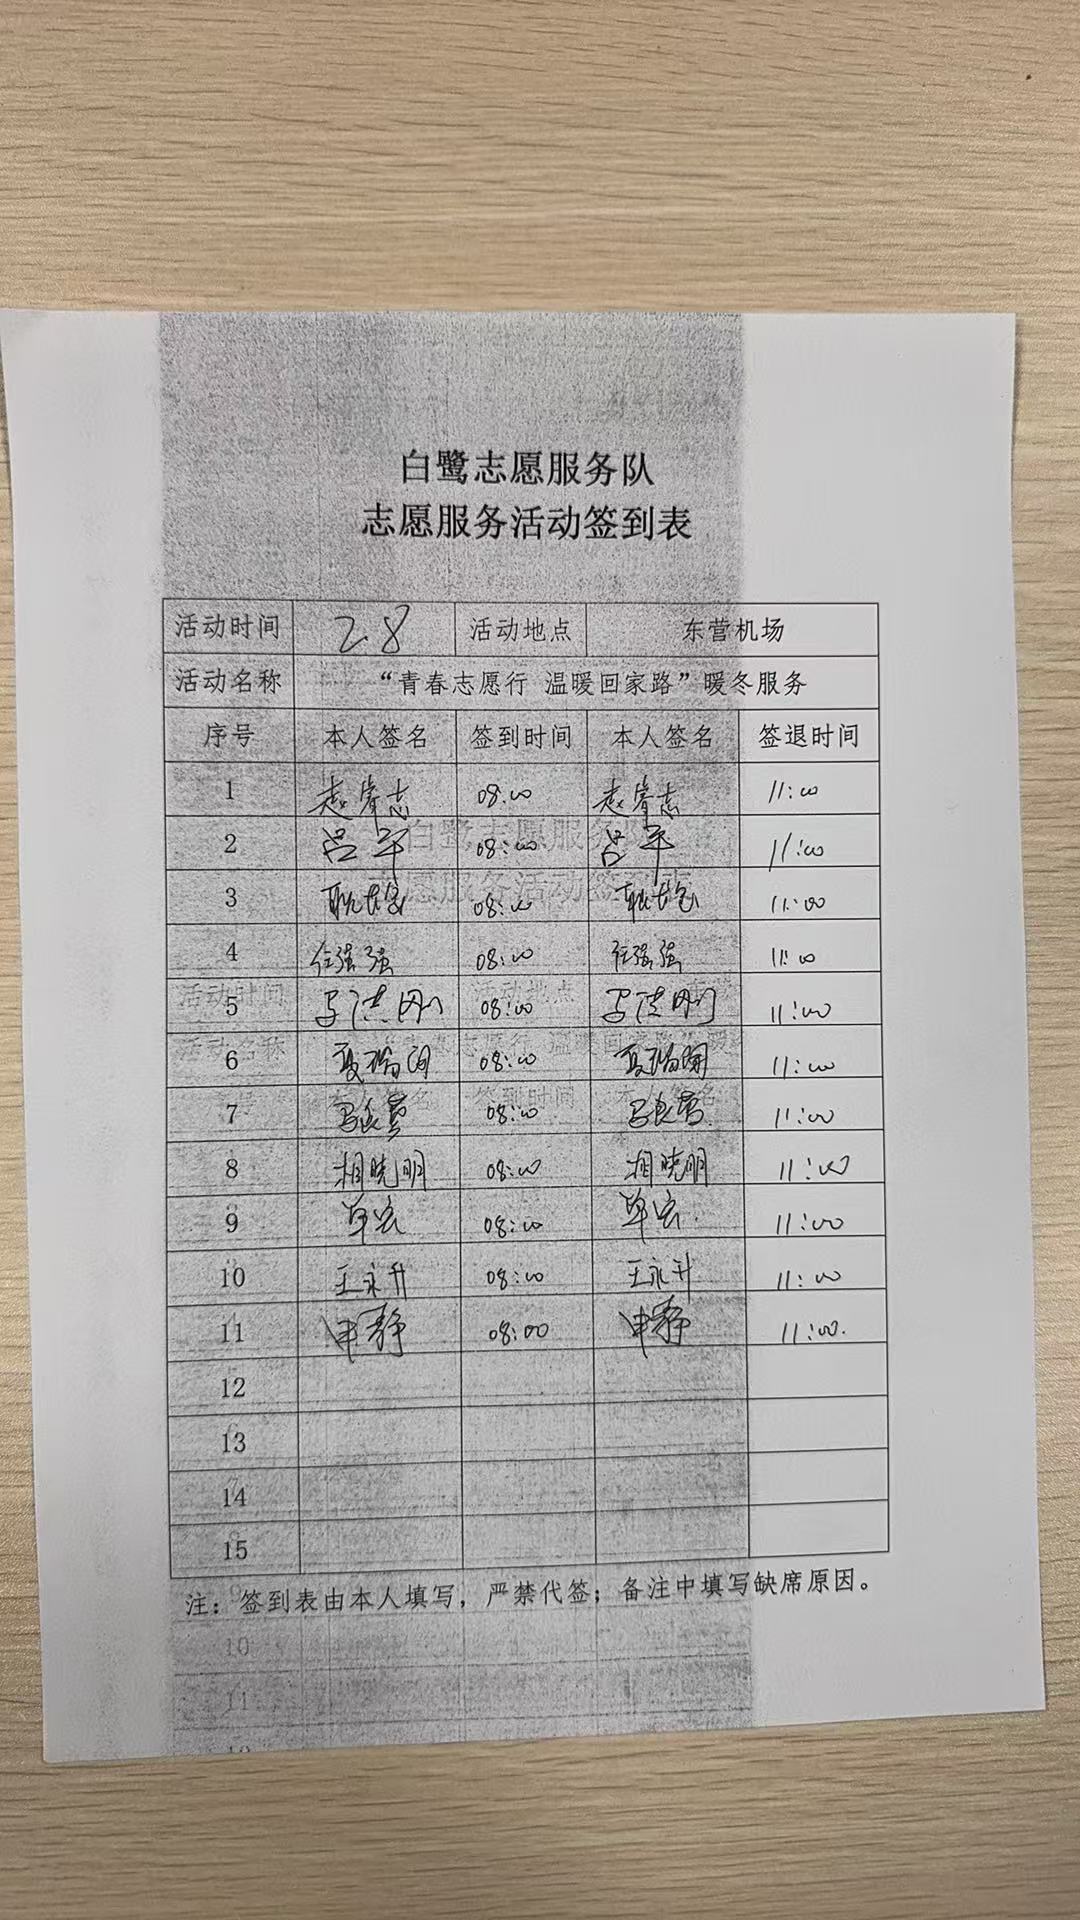 白鹭志愿服务队
志愿服务活动签到表
活动时间 2.8 活动地点 东营机场
活动名称 “青春志愿行 温暖回家路”暖冬服务
序号 本人签名 签到时间 本人签名 签退时间
1 赵睿志 08:00 赵睿志 11:00
2 吕平 08:00 吕平 11:00
3 08:00 11:00
4 任强强 08:00 任强强 11:00
5 08:00 11:00
6 08:00 11:00
7 08:00 11:00
8 相晓明 08:00 相晓明 11:00
9 单宏 08:00 单宏 11:00
10 王永升 08:00 王永升 11:00
11 申静 08:00 申静 11:00.
12
13
14
15
注：签到表由本人填写，严禁代签；备注中填写缺席原因。
10
11